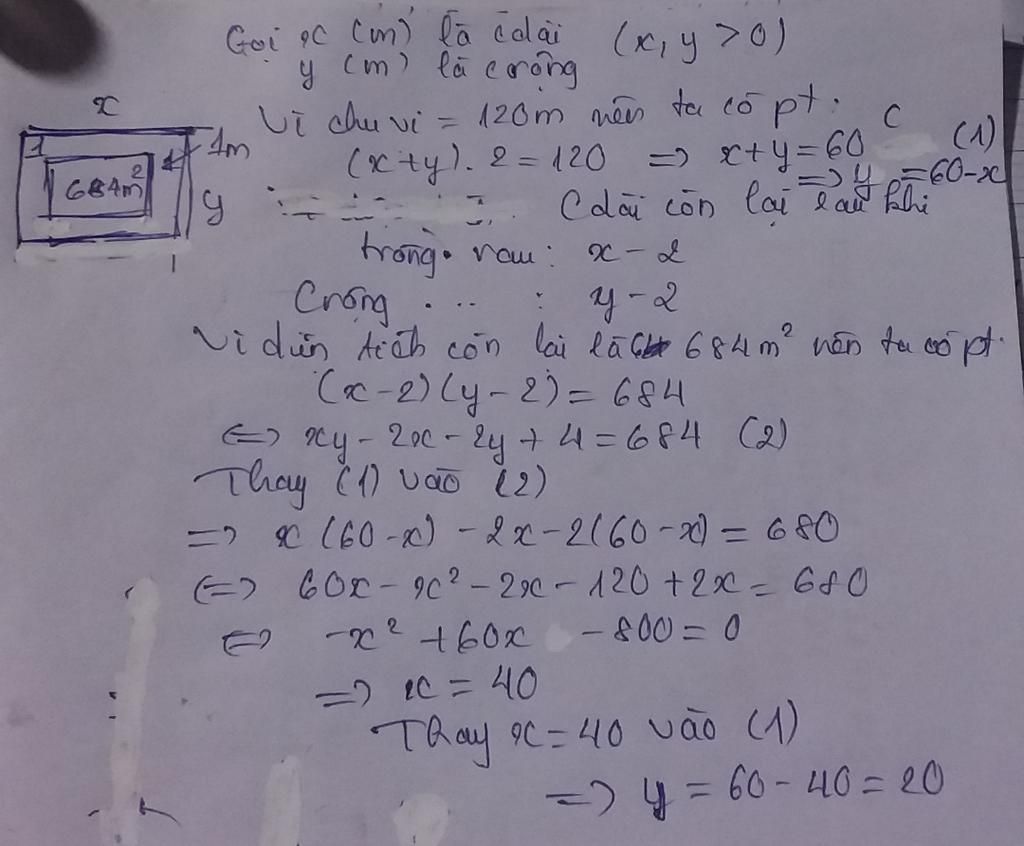 Gọi x (m) là cdài (x, y > 0)
y (m) là crộng
Vì chu vi = 120m nên ta có pt:
(x+y). 2 = 120 => x+y = 60 (1)
=> y = 60-x
x
1
1m
684m²
y
Cdài còn lại sau khi
trồng rau: x - 2
Crộng ... : y - 2
Vì diện tích còn lại là 684m² nên ta có pt:
(x-2)(y-2) = 684
<=> xy - 2x - 2y + 4 = 684 (2)
Thay (1) vào (2)
=> x (60-x) - 2x - 2(60-x) = 680
<=> 60x - x² - 2x - 120 + 2x = 680
<=> -x² + 60x - 800 = 0
=> x = 40
Thay x = 40 vào (1)
=> y = 60 - 40 = 20